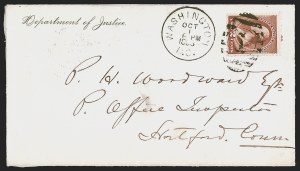 Department of Justice.
WASHINGTON
OCT
1
PM
D.C.
P. H. Woodward Esq.
P. Office Inspector
Hartford, Conn